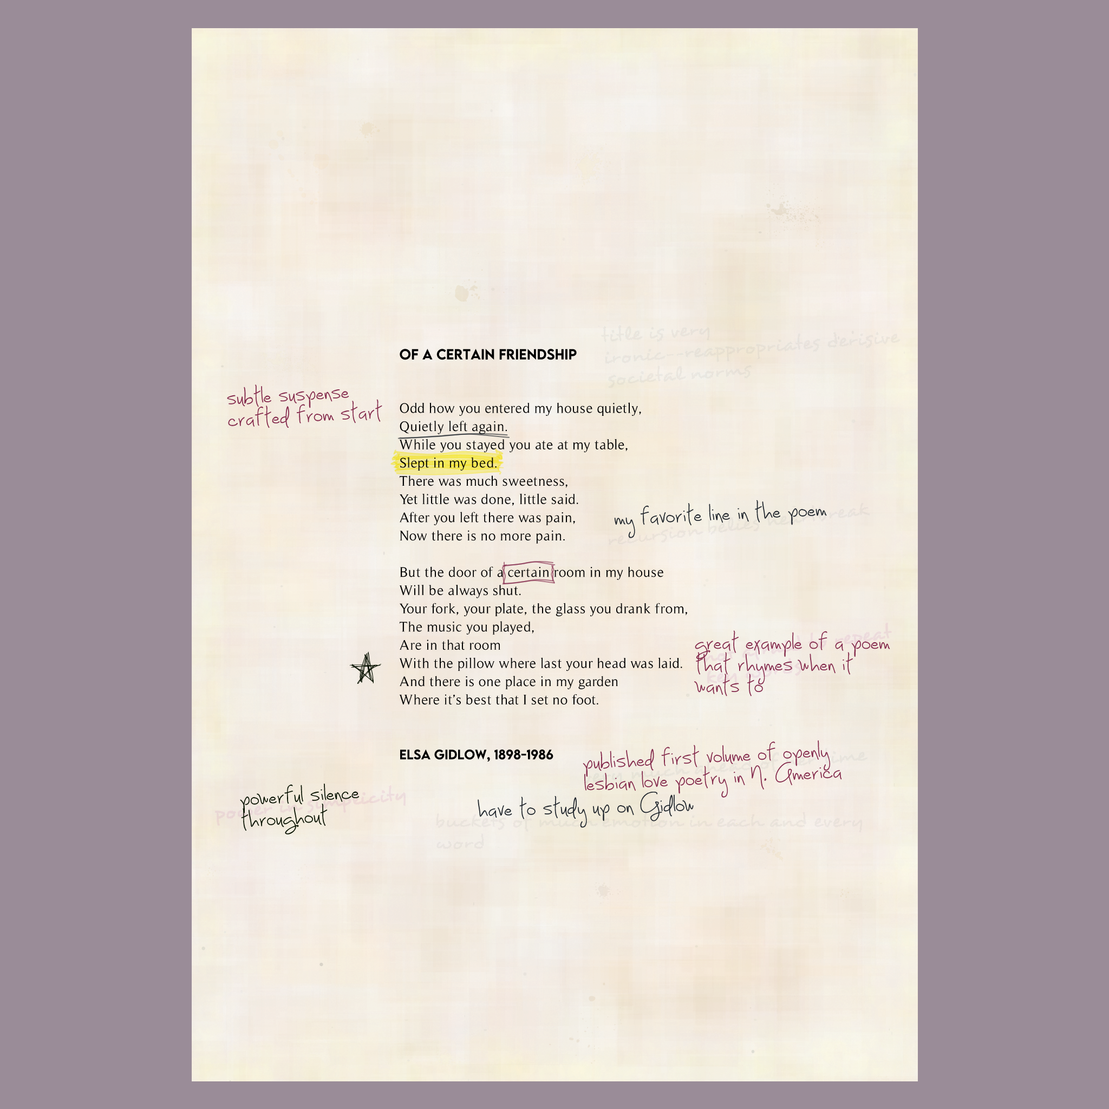 title is very
ironic--reappropriates derisive
societal norms
OF A CERTAIN FRIENDSHIP
subtle suspense
crafted from start
Odd how you entered my house quietly,
Quietly left again.
While you stayed you ate at my table,
Slept in my bed.
There was much sweetness,
Yet little was done, little said.
After you left there was pain,
Now there is no more pain.
my favorite line in the poem
But the door of a certain room in my house
Will be always shut.
Your fork, your plate, the glass you drank from,
The music you played,
Are in that room
With the pillow where last your head was laid.
And there is one place in my garden
Where it's best that I set no foot.
great example of a poem
that rhymes when it
wants to
ELSA GIDLOW, 1898-1986
published first volume of openly
lesbian love poetry in N. America
powerful silence
throughout
have to study up on Gidlow
buckets of much emotion in each and every
word